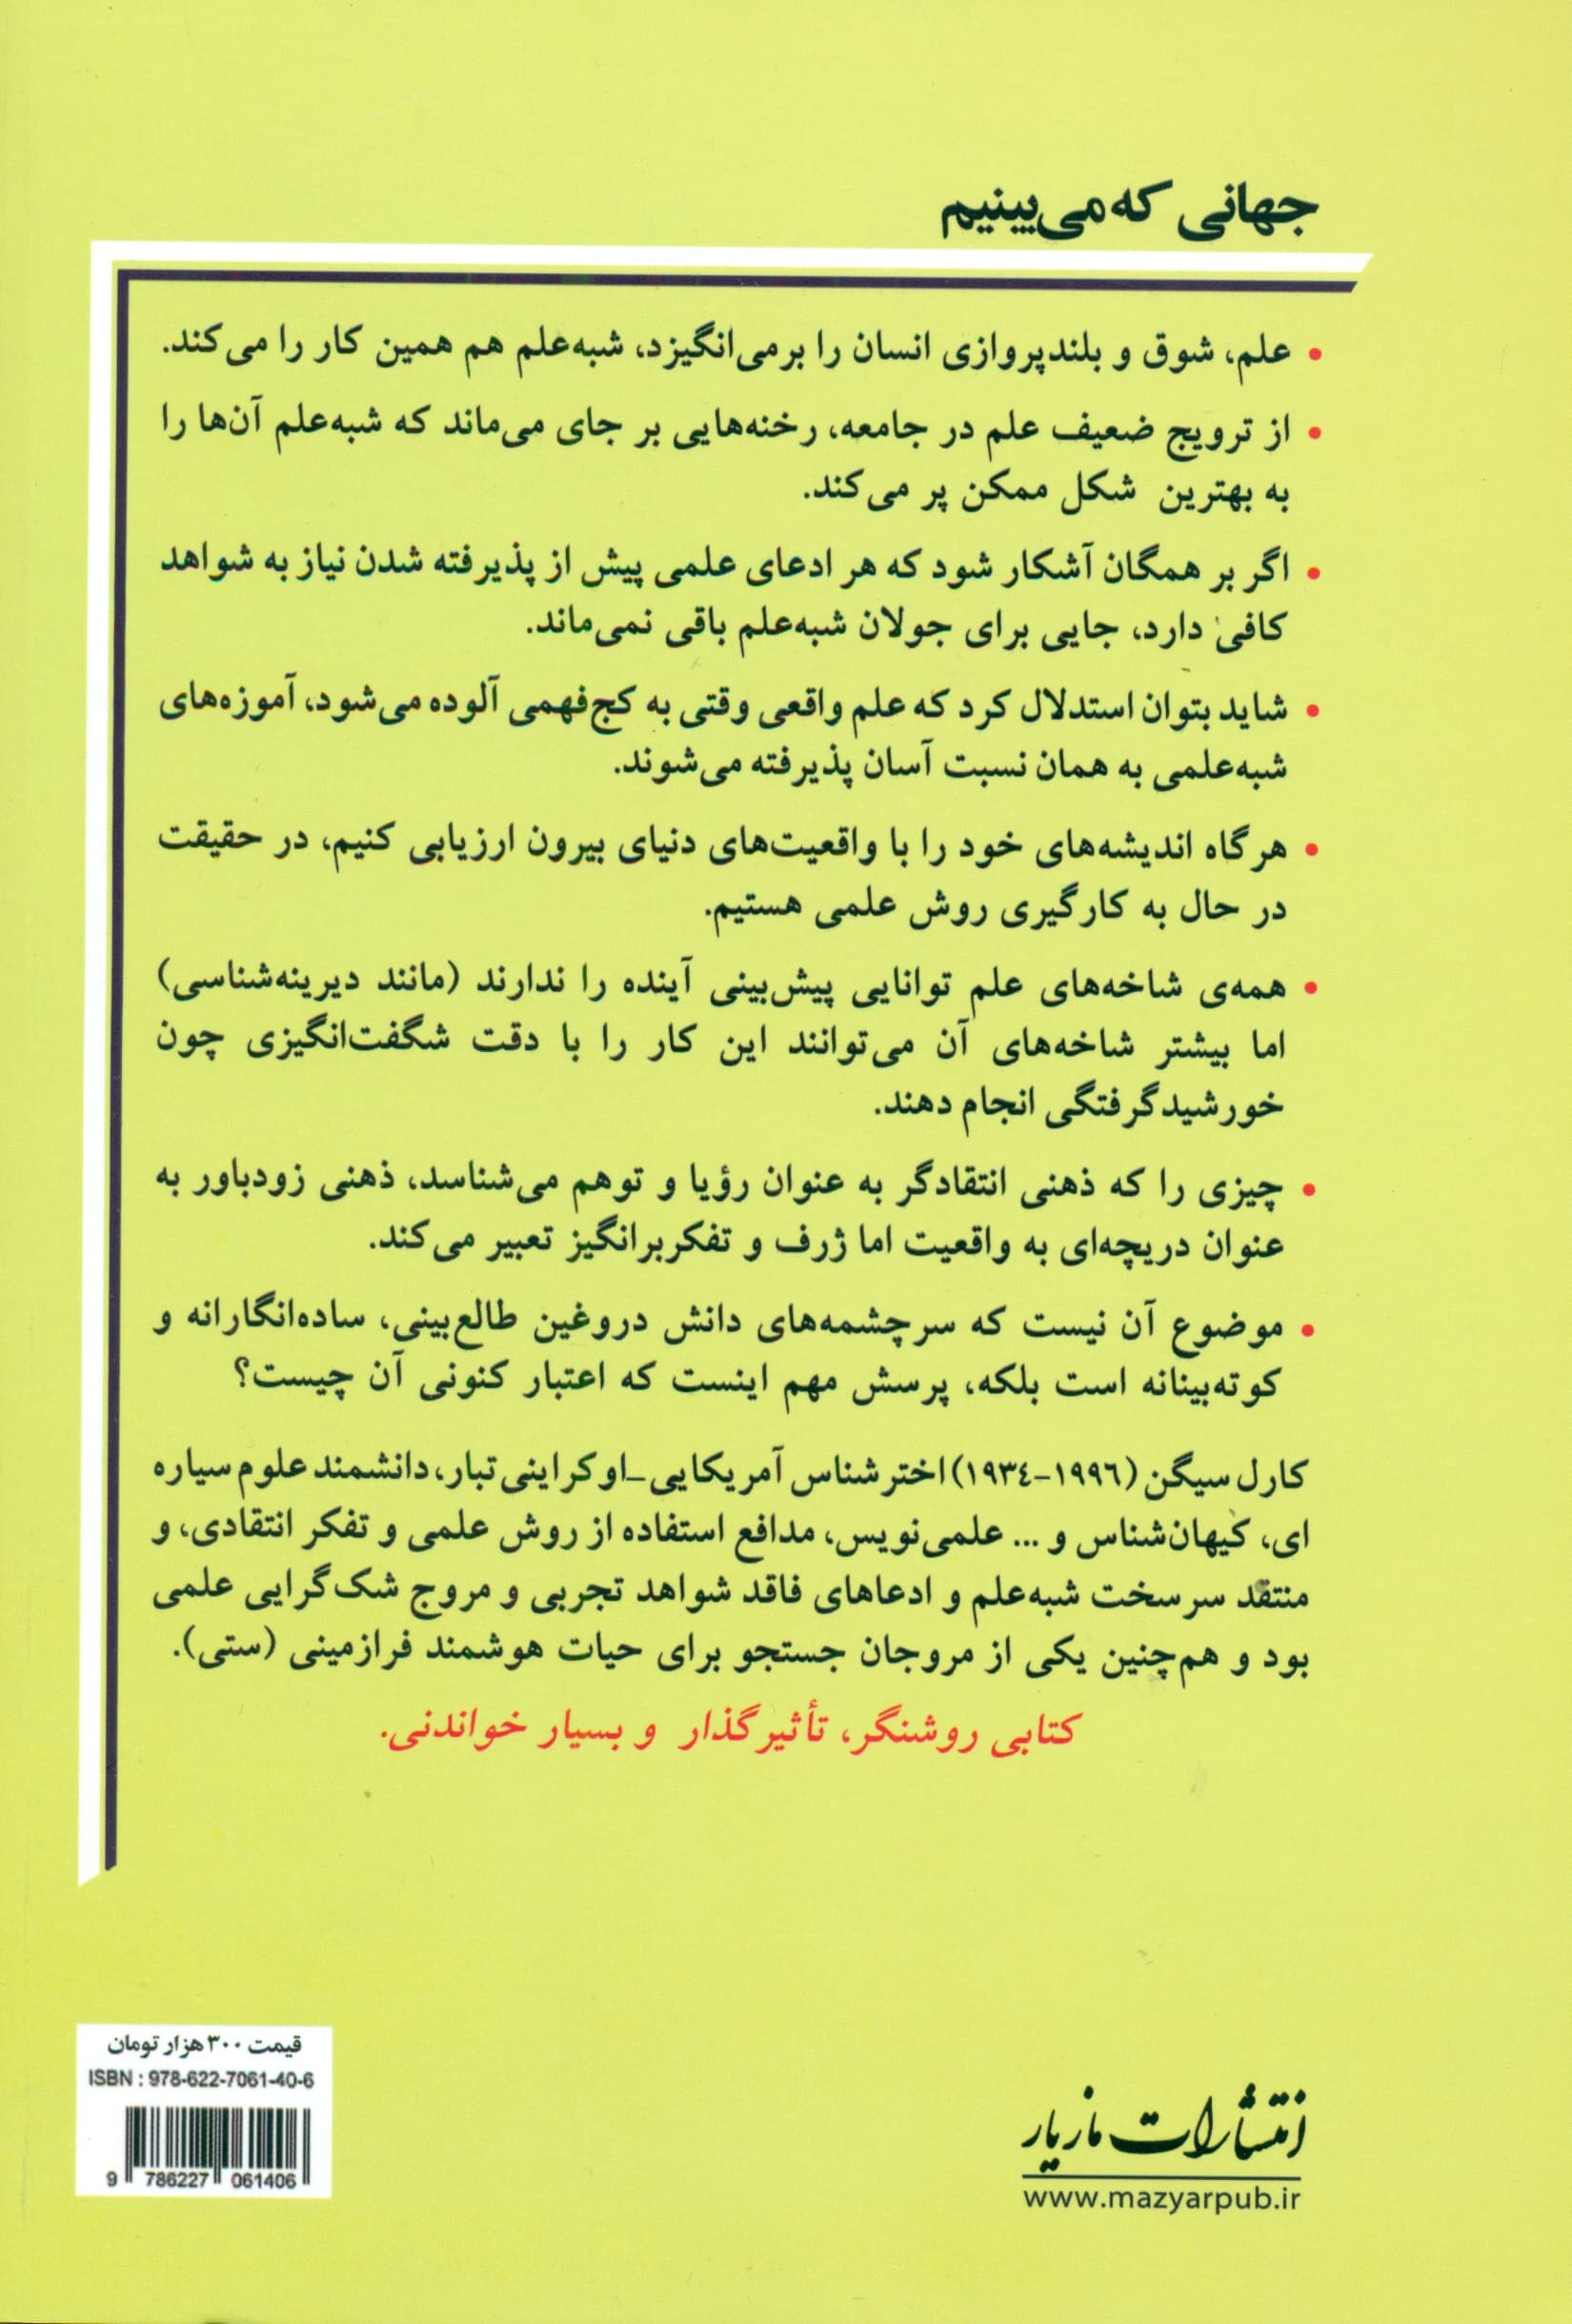 جهانی که می‌بینیم
• علم، شوق و بلندپروازی انسان را برمی‌انگیزد، شبه‌علم هم همین کار را می‌کند.
• از ترویج ضعیف علم در جامعه، رخنه‌هایی بر جای می‌ماند که شبه‌علم آن‌ها را
به بهترین شکل ممکن پر می‌کند.
• اگر بر همگان آشکار شود که هر ادعای علمی پیش از پذیرفته شدن نیاز به شواهد
کافی دارد، جایی برای جولان شبه‌علم باقی نمی‌ماند.
• شاید بتوان استدلال کرد که علم واقعی وقتی به کج‌فهمی آلوده می‌شود، آموزه‌های
شبه‌علمی به همان نسبت آسان پذیرفته می‌شوند.
• هرگاه اندیشه‌های خود را با واقعیت‌های دنیای بیرون ارزیابی کنیم، در حقیقت
در حال به کارگیری روش علمی هستیم.
• همه‌ی شاخه‌های علم توانایی پیش‌بینی آینده را ندارند (مانند دیرینه‌شناسی)
اما بیشتر شاخه‌های آن می‌توانند این کار را با دقت شگفت‌انگیزی چون
خورشیدگرفتگی انجام دهند.
• چیزی را که ذهنی انتقادگر به عنوان رؤیا و توهم می‌شناسد، ذهنی زودباور به
عنوان دریچه‌ای به واقعیت اما ژرف و تفکربرانگیز تعبیر می‌کند.
• موضوع آن نیست که سرچشمه‌های دانش دروغین طالع‌بینی، ساده‌انگارانه و
کوته‌بینانه است بلکه، پرسش مهم اینست که اعتبار کنونی آن چیست؟
کارل سیگن (۱۹۹۶-۱۹۳۴) اخترشناس آمریکایی_اوکراینی تبار، دانشمند علوم سیاره
ای، کیهان‌شناس و ... علمی‌نویس، مدافع استفاده از روش علمی و تفکر انتقادی، و
منتقد سرسخت شبه‌علم و ادعاهای فاقد شواهد تجربی و مروج شک‌گرایی علمی
بود و هم‌چنین یکی از مروجان جستجو برای حیات هوشمند فرازمینی (ستی).
کتابی روشنگر، تأثیرگذار و بسیار خواندنی.
قیمت ۳۰۰ هزار تومان
ISBN : 978-622-7061-40-6
9 786227 061406
انتشارات مازیار
www.mazyarpub.ir